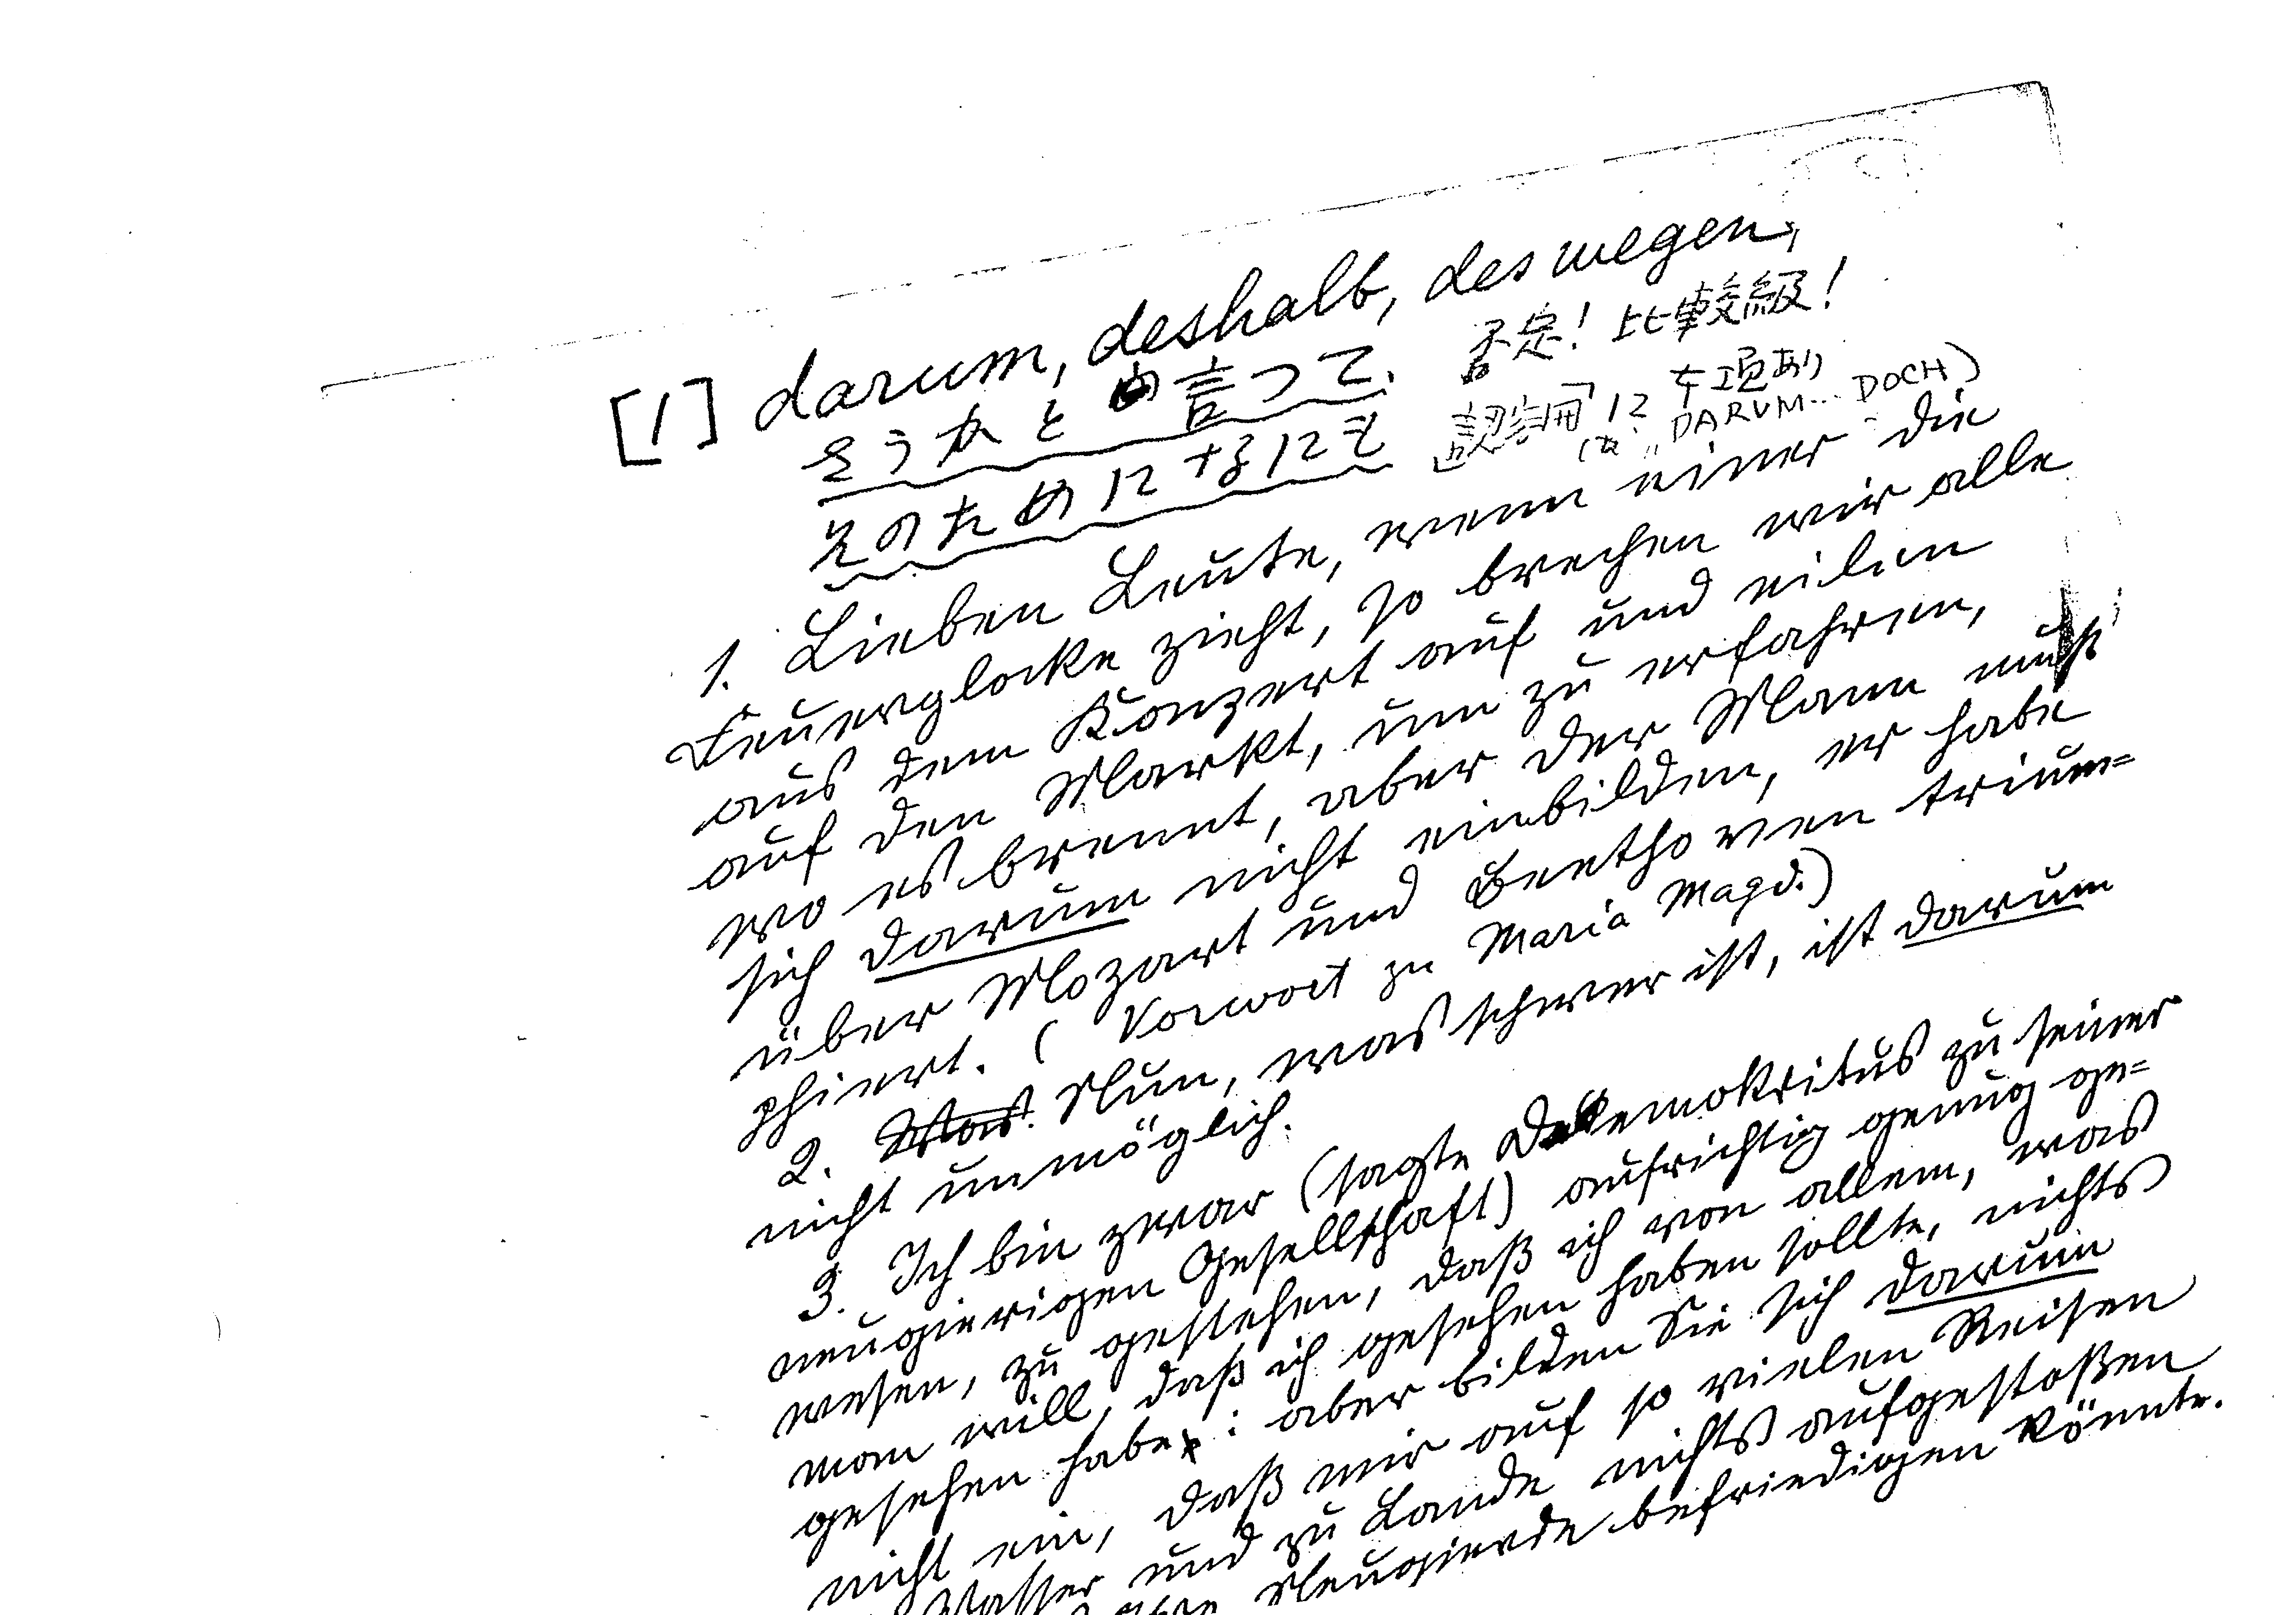 [1] darum, deshalb, deswegen,
そうかと言って. 否定! 比較級!
そのために 認識用に 本項あり
(為 „DARUM... DOCH)
1. Lieben Leute, wenn einer die
Feuerglocke zieht, so brechen wir alle
aus dem Konzert auf und eilen
auf den Markt, um zu erfahren,
wo es brennt, aber der Mann muß
sich darum nicht einbilden, er habe
über Mozart und Beethoven trium=
phiert. (Vorwort zu Maria Magd.)
2. Nun, was schwer ist, ist darum
nicht unmöglich.
3. Ich bin zwar (sagte Demokritus zu seiner
neugierigen Gesellschaft) aufrichtig genug ge=
wesen, zu gestehen, daß ich von allem, was
man will, daß ich gesehen haben sollte, nichts
gesehen habe: aber bilden Sie sich darum
nicht ein, daß mir auf so vielen Reisen
Wasser und zu Lande nichts aufgestoßen
Neugierde befriedigen könnte.